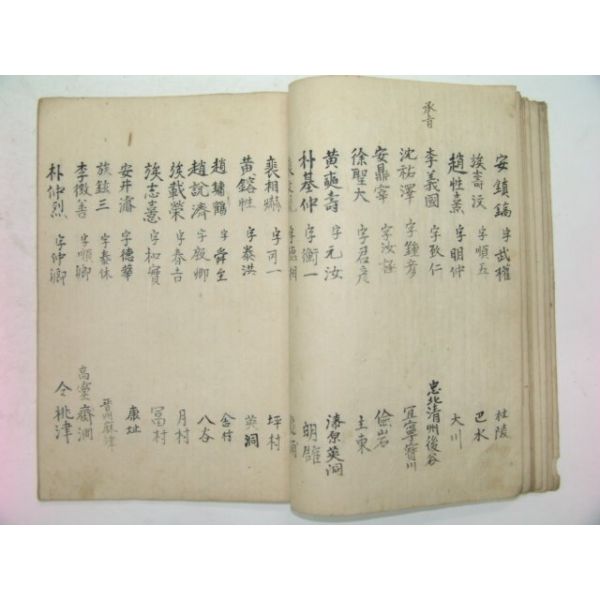 安鎮鎬 字武權 杜陵
族壽汶 字順五 巴水
趙性熹 字明仲 大川
李義國 字致仁 忠北清州後谷
承旨
沈祐澤 字鍾彦 宜寧寶川
安鼎宰 字汝 儉岩
徐聖大 字君彦 主東
黃 壽 字元汝 漆原英洞
朴基仲 字衡一 朗雒
字
裵相 字可一 坪村
黃鎔性 字泰洪 英洞
趙鏞鶴 字舜至 舍村
趙說濟 字殷卿 八谷
族載榮 字春吉 月村
族志憙 字和實 冨村
安井濬 字德華 康址
族鎮三 字泰休 晋州麻津
李徽善 字順卿 高靈齋洞
朴仲烈 字仲卿 仝桃津